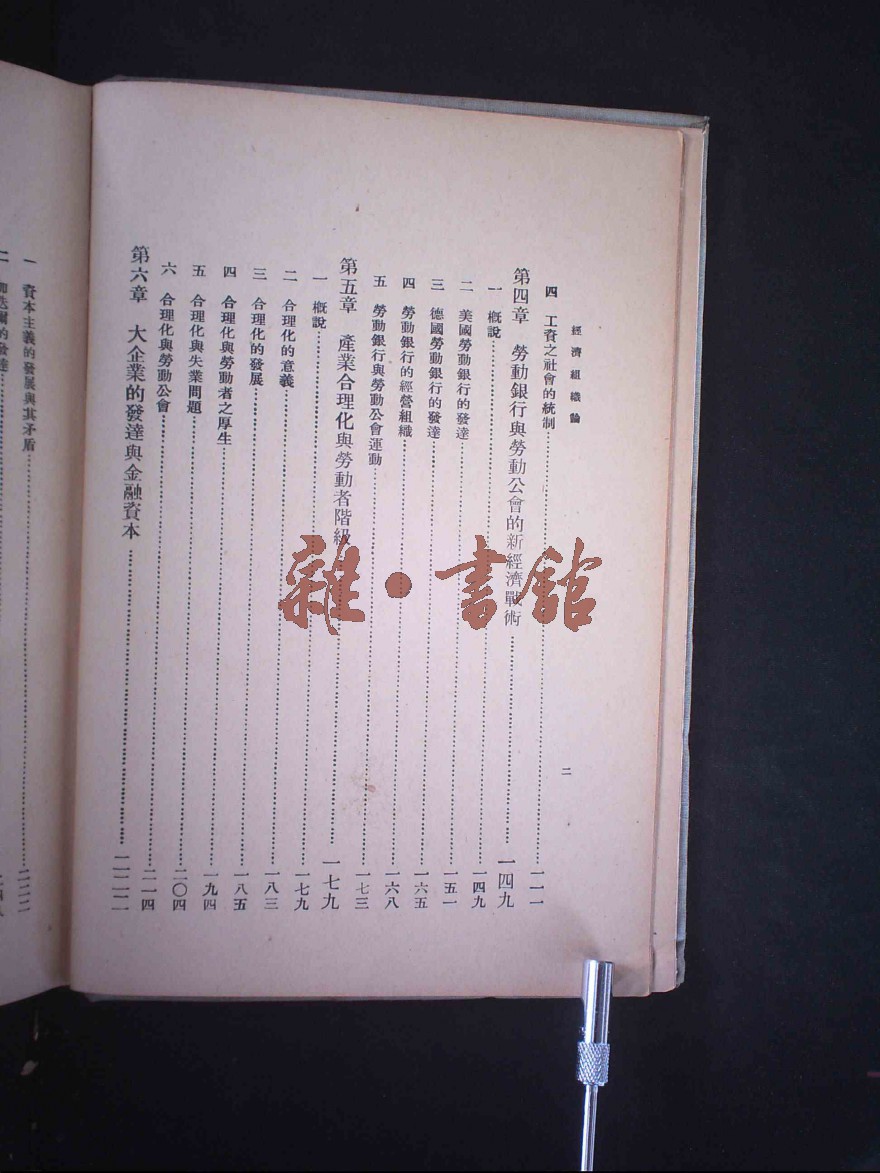 經濟組織論
二
四 工資之社會的統制……一一一
第四章 勞動銀行與勞動公會的新經濟戰術……一四九
一 概說……一四九
二 美國勞動銀行的發達……一五一
三 德國勞動銀行的發達……一六五
四 勞動銀行的經營組織……一六八
五 勞動銀行與勞動公會運動……一七三
第五章 產業合理化與勞動者階級……一七九
一 概說……一七九
二 合理化的意義……一八三
三 合理化的發展……一八五
四 合理化與勞動者之厚生……一九四
五 合理化與失業問題……二〇四
六 合理化與勞動公會……二一四
第六章 大企業的發達與金融資本……二二二
一 資本主義的發展與其矛盾……二二二
二 的發達……
雜·書館